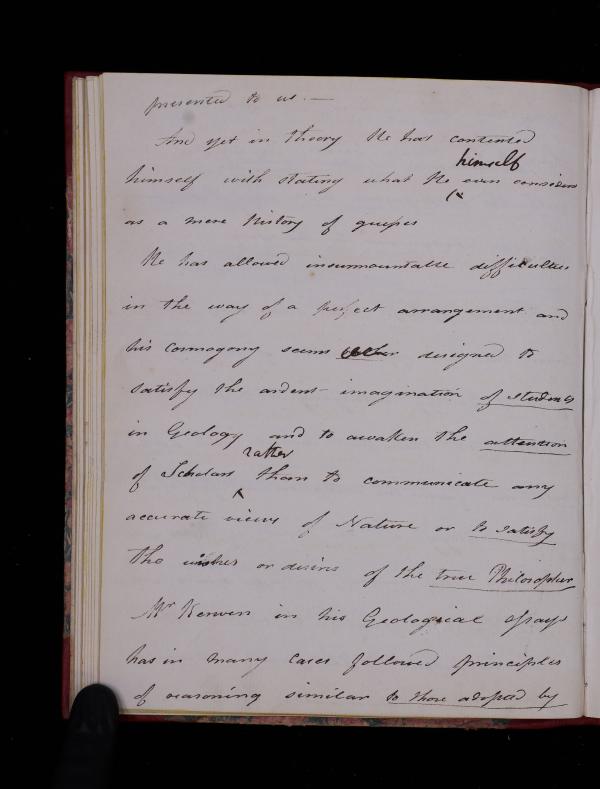 presented to us. —
And yet in theory He has contented
himself
himself with stating what He even considers
as a mere History of guesses
He has allowed insurmountable difficulties
in the way of a perfect arrangement and
his cosmogony seems designed to
satisfy the ardent imagination of students
in Geology and to awaken the attention
rather
of Scholars than to communicate any
accurate views of Nature or to satisfy
the wishes or desires of the true Philosopher
Mr Kerwen in his Geological Essays
has in many cases followed principles
of reasoning similar to those adopted by